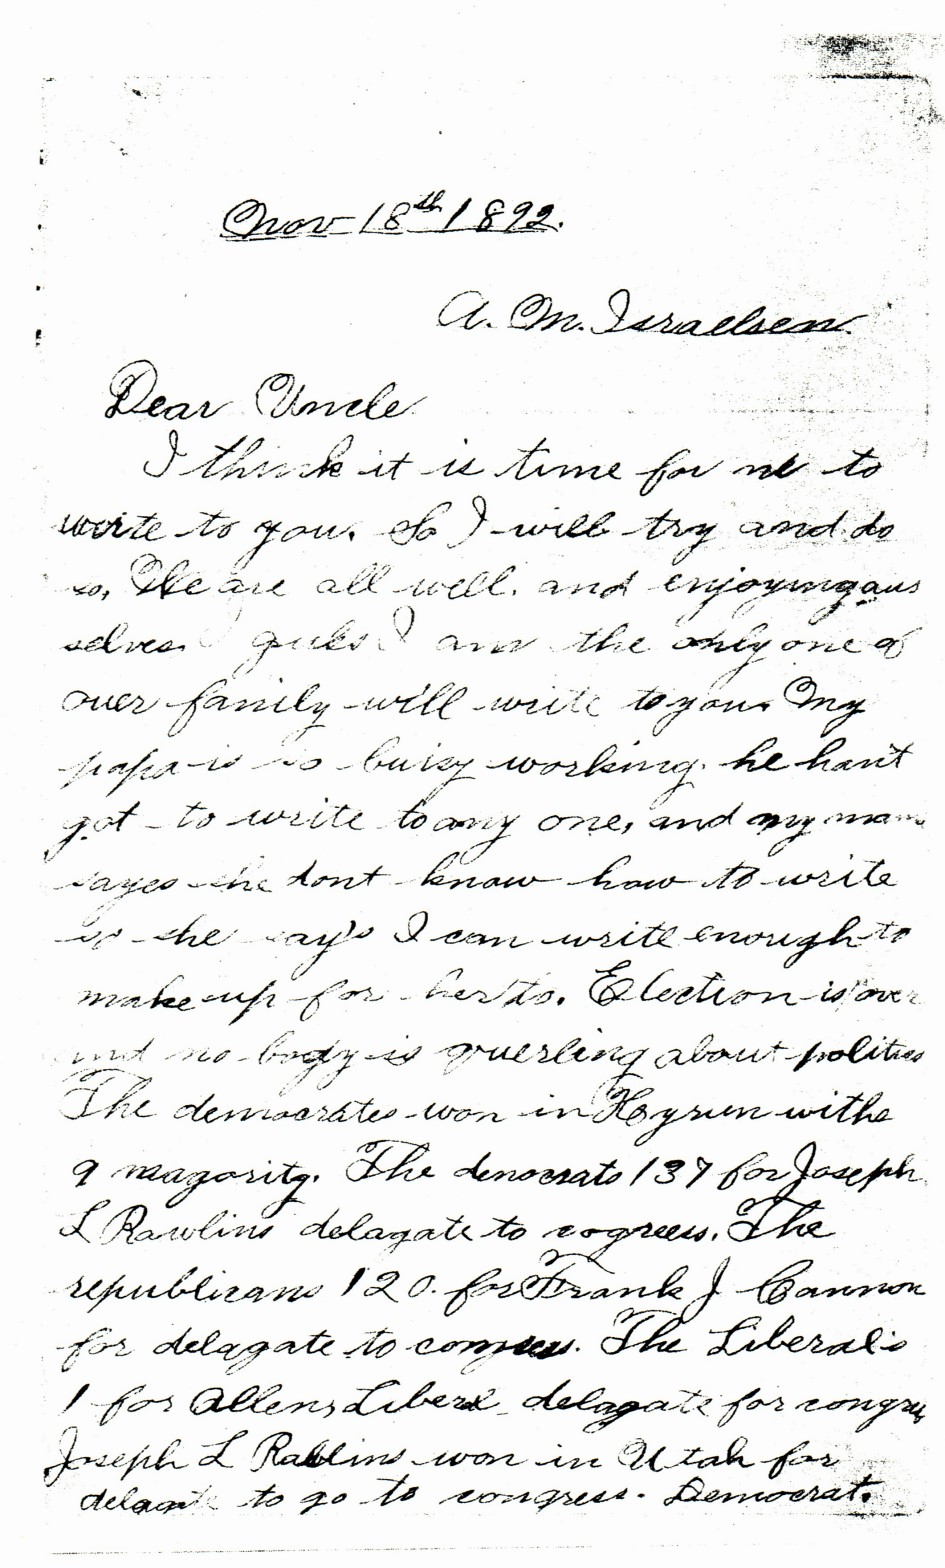 Nov 18th 1892.
A. M. Israelsen.
Dear Uncle
I think it is time for me to
write to you. So I will try and do
so, We are all well. and enjoying our
selves. I guess I am the only one of
over family will write to you. My
papa is so buisy working. he hant
got to write to any one, and my mama
sayes she dont know how to write
so she say's I can write enough to
make up for her to. Election is over
and no body is querling about politics
The democrates won in Hyrum withe
9 magority. The democrats 137 for Joseph
L Rawlins delagate to cogress. The
republicans 120. for Frank J Cannon
for delagate to congress. The Liberals
1 for Allens Liberl delagate for congres
Joseph L Rallins won in Utah for
delagate to go to congress. Democrat.